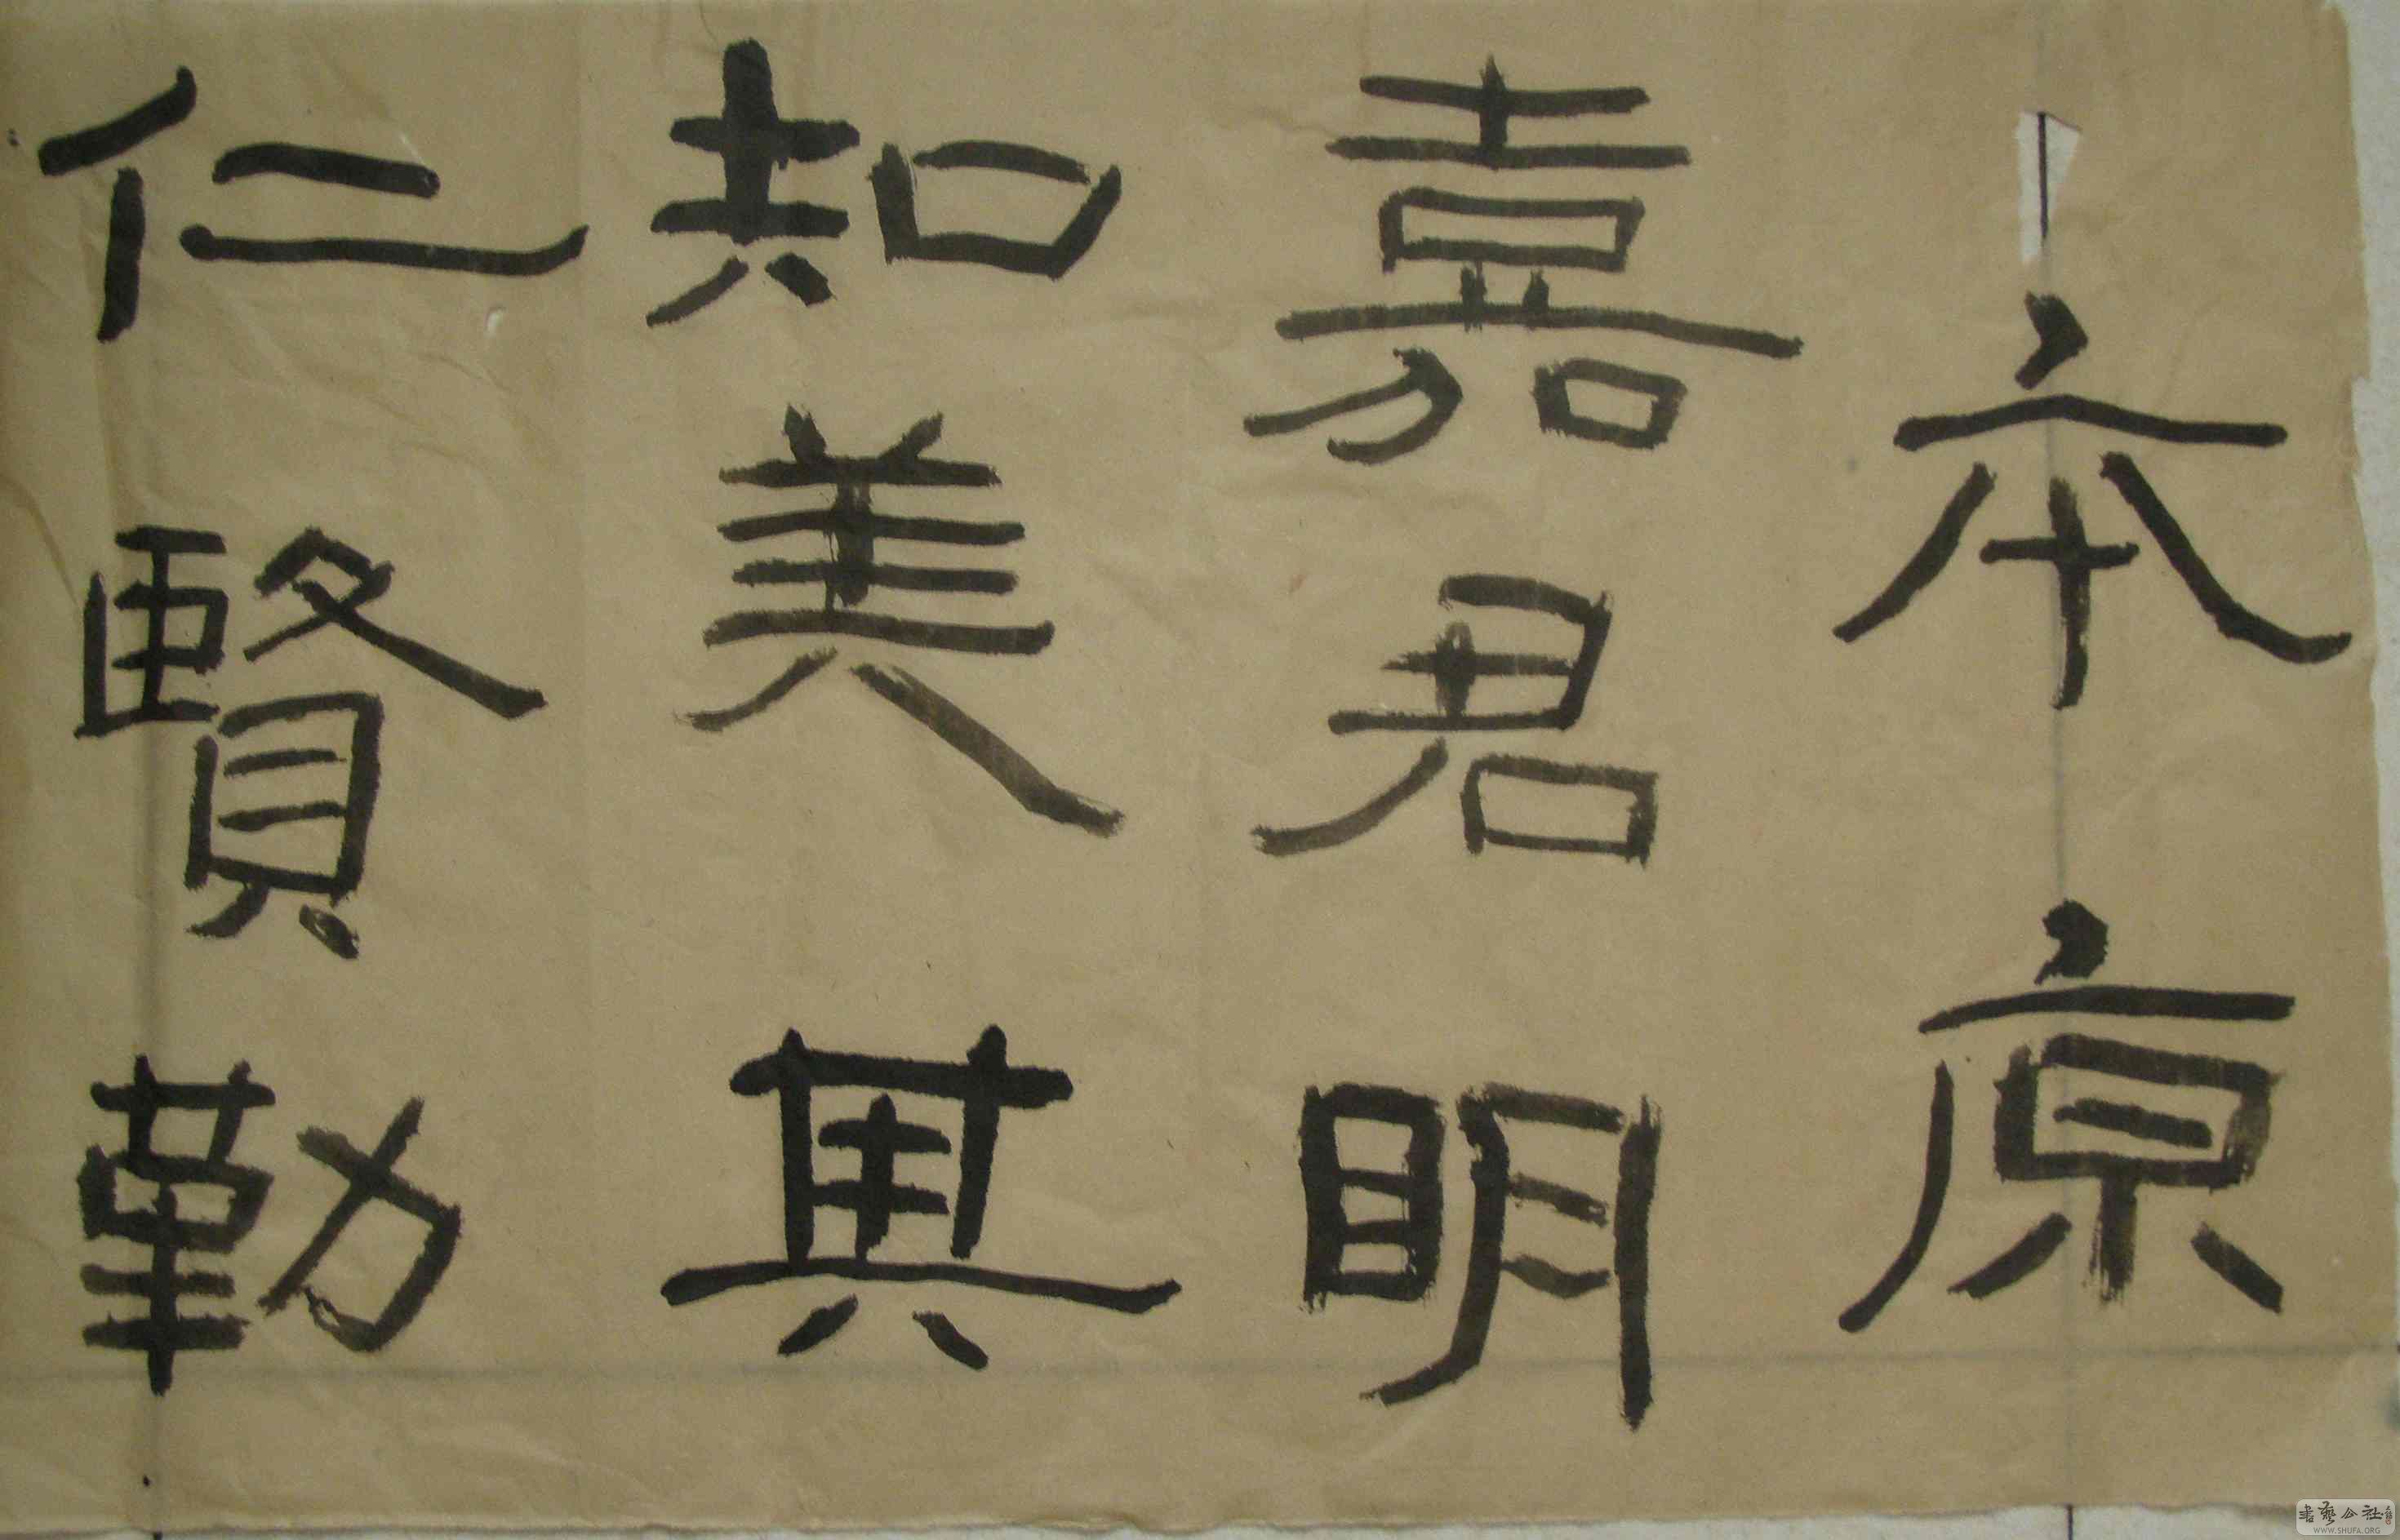 本原
嘉君明
知美其
仁賢勒
書藝公社
WWW.SHUFA.ORG